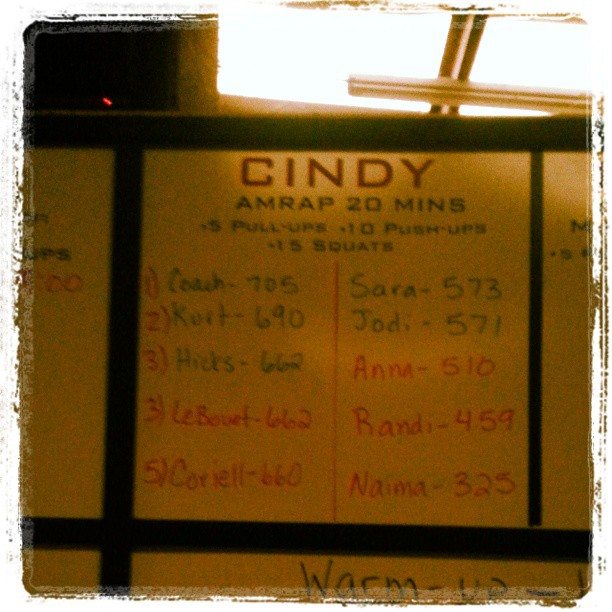 CINDY
AMRAP 20 MINS
•5 PULL-UPS •10 PUSH-UPS
•15 SQUATS
1) Coach - 705
2) Kurt - 690
3) Hicks - 662
3) LeBouet - 662
5) Coriell - 660
Sara - 573
Jodi - 571
Anna - 510
Randi - 459
Naima - 325
UPS
Warm-up -